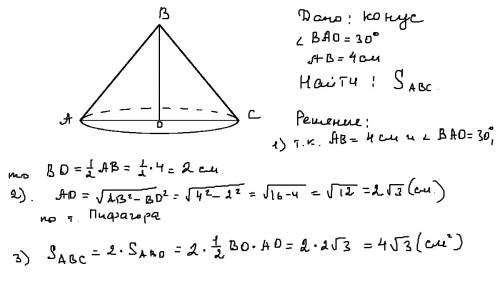 B
A
O
C
Дано: конус
∠ BAO = 30°
AB = 4 см
Найти: S_ABC.
Решение:
1) т.к. AB = 4 см и ∠ BAO = 30°,
то BO = 1/2 AB = 1/2 · 4 = 2 см.
2). AO = √(AB² − BO²) = √(4² − 2²) = √(16 − 4) = √12 = 2√3 (см.)
по т. Пифагора
3) S_ABC = 2 · S_ABO = 2 · 1/2 BO · AO = 2 · 2√3 = 4√3 (см²)